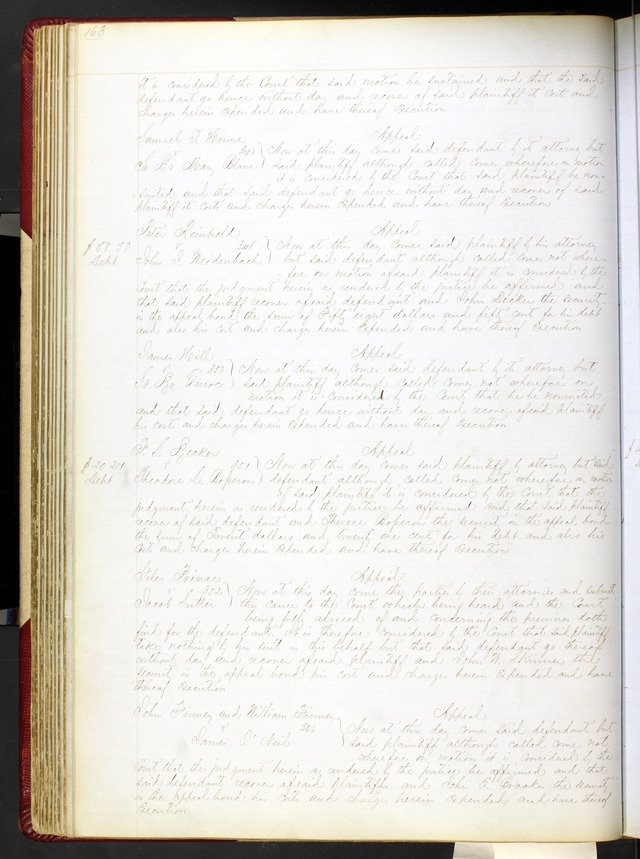 163
it is considered by the Court that said motion be sustained and that the said
defendant go hence without day and recover of said plaintiff it cost and
charges herein expended and have thereof execution
Samuel T. Appeal
vs 346 Now at this day comes said defendant by it attorney but
St Bt Mary Blane said plaintiff although called comes wherefore on motion
it is considered by the Court that said plaintiff be non-
suited and that said defendant go hence without day and recover of said
plaintiff it costs and charges herein expended and have thereof execution
Peter Reinhold Appeal
$58.50 vs 348 Now at this day comes said plaintiff by his attorney
Debt John S. Weidenbach but said defendant although called comes not where-
fore on motion afsaid plaintiff it is considered by the
Court that the judgment herein as rendered by the justice be affirmed and
that said plaintiff recover afsaid defendant and John Decker the security
in the appeal bond the sum of Fifty eight dollars and fifty cent for his debt
and also his cost and charges herein expended and have thereof execution
James Hill Appeal
vs 350 Now at this day comes said defendant by it attorney but
St Bt said plaintiff although called comes not wherefore on
motion it is considered by the Court that he be nonsuited
and that said defendant go hence without day and recover afsaid plaintiff
his costs and charges herein expended and have thereof execution
F. S. Becker Appeal
$20.21 vs 351 Now at this day comes said plaintiff by attorney but said
Debt Theodore L. Roperon defendant although called comes not wherefore on motion
of said plaintiff it is considered by the Court that the
judgment herein as rendered by the justice be affirmed and that said plaintiff
recover of said defendant and the security on the appeal bond
the sum of Twenty dollars and twenty one cents for his debt and also his
costs and charges herein expended and have thereof execution
Giles Prince Appeal
vs 352 Now at this day come the parties by their attornies and submit
Jacob Sutter this cause to the Court which being heard and the Court
being fully advised of and concerning the premises doth
find for the defendant It is therefore considered by the Court that said plaintiff
take nothing by his suit in this behalf but that said defendant go thereof
without day and recover afsaid plaintiff and John W. Skinner the
security in the appeal bond his costs and charges herein expended and have
thereof execution
John Finney and William Finney Appeal
vs 366 Now at this day comes said defendant but
James O'Neil said plaintiff although called come not
wherefore on motion it is considered by the
Court that the judgment herein as rendered by the justice be affirmed and that
said defendant recover afsaid plaintiffs and John the security
in the appeal bond his costs and charges herein expended and have thereof
execution